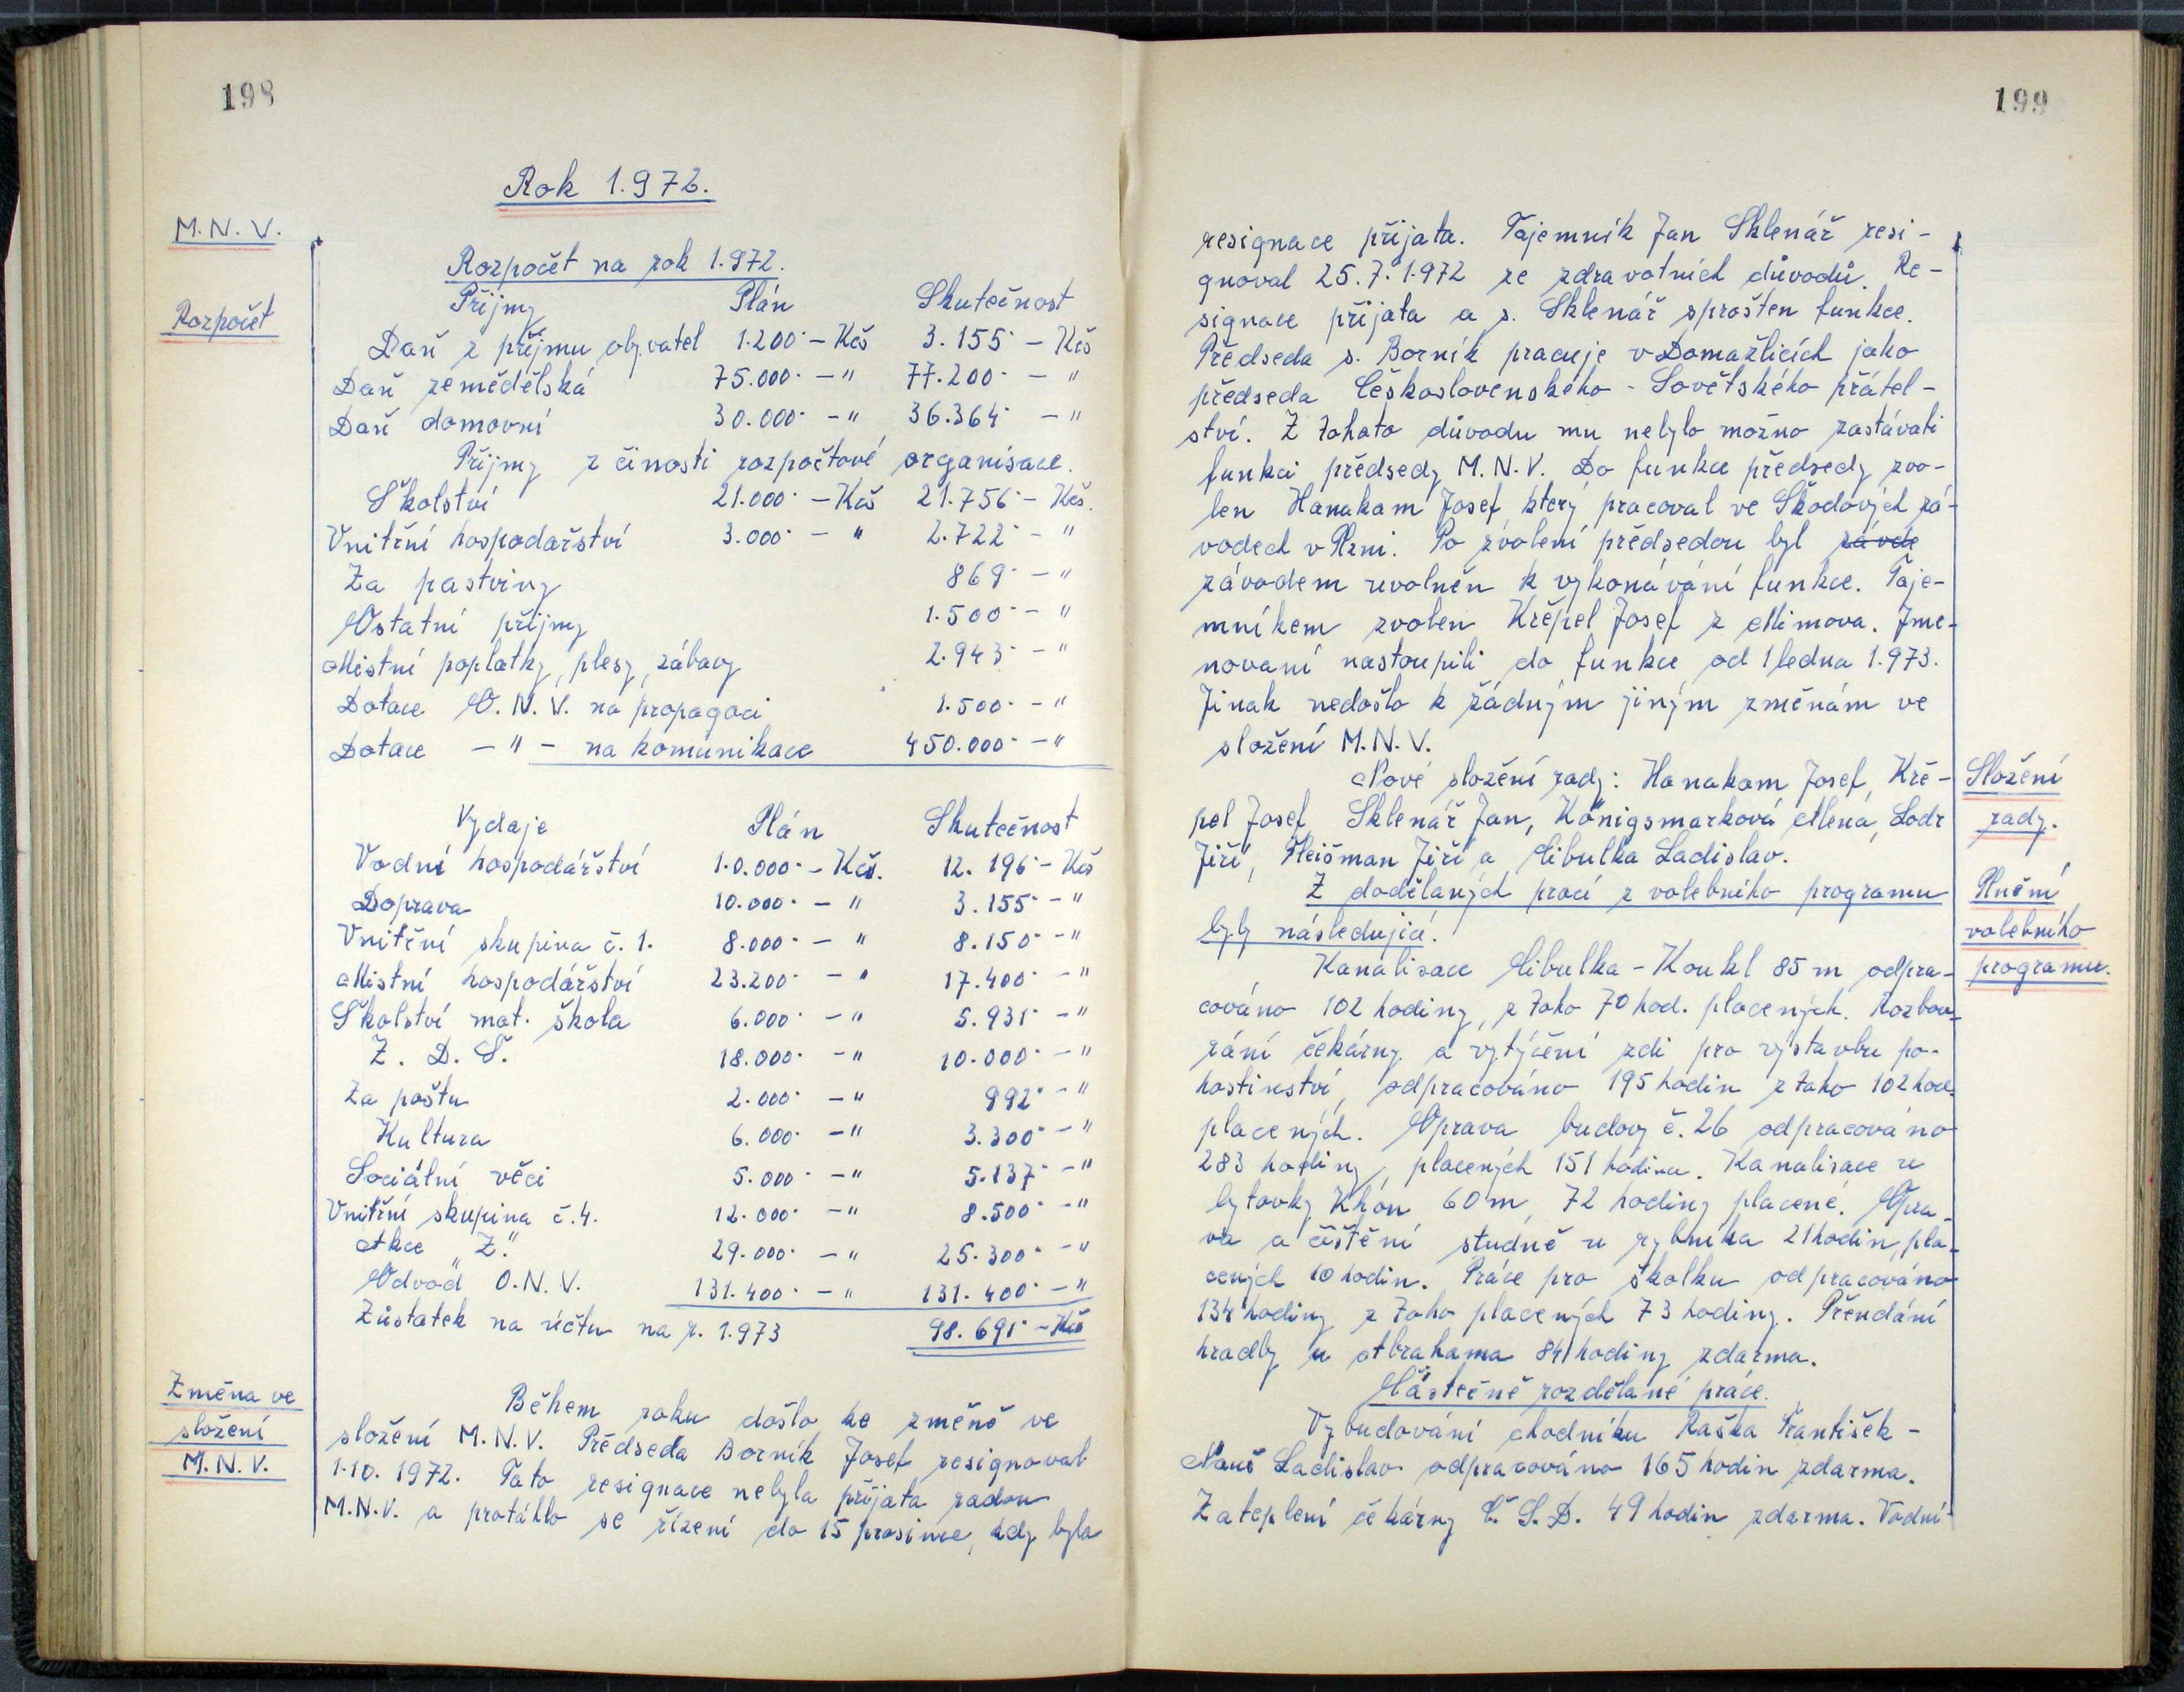 198
Rok 1.972.
M.N.V.
Rozpočet na rok 1.972.
Rozpočet
Příjmy Plán Skutečnost
Daň z příjmu obyvatel 1.200·- Kčs 3.155·- Kčs
Daň zemědělská 75.000·- " 77.200·- "
Daň domovní 30.000·- " 36.364·- "
Příjmy z činosti rozpočtové organisace.
Školství 21.000·- Kčs 21.756·- Kčs.
Vnitřní hospodařství 3.000·- " 2.722·- "
Za pastviny 869·- "
Ostatní příjmy 1.500·- "
Místní poplatky, plesy, zábavy 2.943·- "
Dotace O.N.V. na propagaci 1.500·- "
Dotace - " - na komunikace 450.000·- "
Vydaje Plán Skutečnost
Vodní hospodářství 1.0.000·- Kčs. 12.196·- Kčs
Doprava 10.000·- " 3.155·- "
Vnitřní skupina č. 1. 8.000·- " 8.150·- "
Místní hospodářství 23.200·- " 17.400·- "
Školství mat. škola 6.000·- " 5.931·- "
Z. D. Š. 18.000·- " 10.000·- "
Za poštu 2.000·- " 992·- "
Kultura 6.000·- " 3.300·- "
Sociální věci 5.000·- " 5.137·- "
Vnitřní skupina č. 4. 12.000·- " 8.500·- "
Akce „Z." 29.000·- " 25.300·- "
Odvod O.N.V. 131.400·- " 131.400·- "
Zůstatek na účtu na r. 1.973 98.691·- Kčs
Změna ve
složení
M.N.V.
Během roku došlo ke změně ve
složení M.N.V. Předseda Borník Josef resignoval
1.10. 1972. Tato resignace nebyla přijata radou
M.N.V. a protáhlo se řízení do 15 prosince, kdy byla
199
resignace přijata. Tajemník Jan Sklenář resi-
gnoval 25.7. 1.972 ze zdravotních důvodů. Re-
signace přijata a s. Sklenář sproštěn funkce.
Předseda s. Borník pracuje v Domažlicích jako
předseda Československého - Sovětského přátel-
ství. Z tohoto důvodu mu nebylo možno zastávati
funkci předsedy M.N.V. Do funkce předsedy zvo-
len Hanakam Josef, který pracoval ve Škodových zá-
vodech v Plzni. Po zvolení předsedou byl závde
závodem uvolněn k vykonávání funkce. Taje-
mníkem zvolen Křepel Josef z Mimova. Jme-
novaní nastoupili do funkce od 1 ledna 1.973.
Jinak nedošlo k žádným jiným změnám ve
složení M.N.V.
Nové složení rady: Hanakam Josef, Kře-
pel Josef, Sklenář Jan, Königsmarková Alena, Lodr
Jiří, Fleišman Jiří, a Cibulka Ladislav.
Složení
rady.
Z dodělaných prací z volebního programu
byly následující.
Plnění
volebního
programu.
Kanalisace Cibulka - Koukl 85 m odpra-
cováno 102 hodiny, z toho 70 hod. placených. Rozbou-
rání čekárny a vytýčení zdi pro výstavbu po-
hostinství, odpracováno 195 hodin z toho 102 hod.
placených. Oprava budovy č. 26 odpracováno
283 hodiny, placených 151 hodina. Kanalisace u
bytovky Khón 60 m, 72 hodiny placené. Opra-
va a čištění studně u rybníka 21 hodin, pla-
cených 10 hodin. Práce pro školku odpracováno
134 hodiny z toho placených 73 hodiny. Přendání
hradby u Abrahama 84 hodiny zdarma.
Částečně rozdělané práce.
Vybudování chodníku Raška František -
Nauš Ladislav odpracováno 165 hodin zdarma.
Zateplení čekárny Č.S.D. 49 hodin zdarma. Vodní-